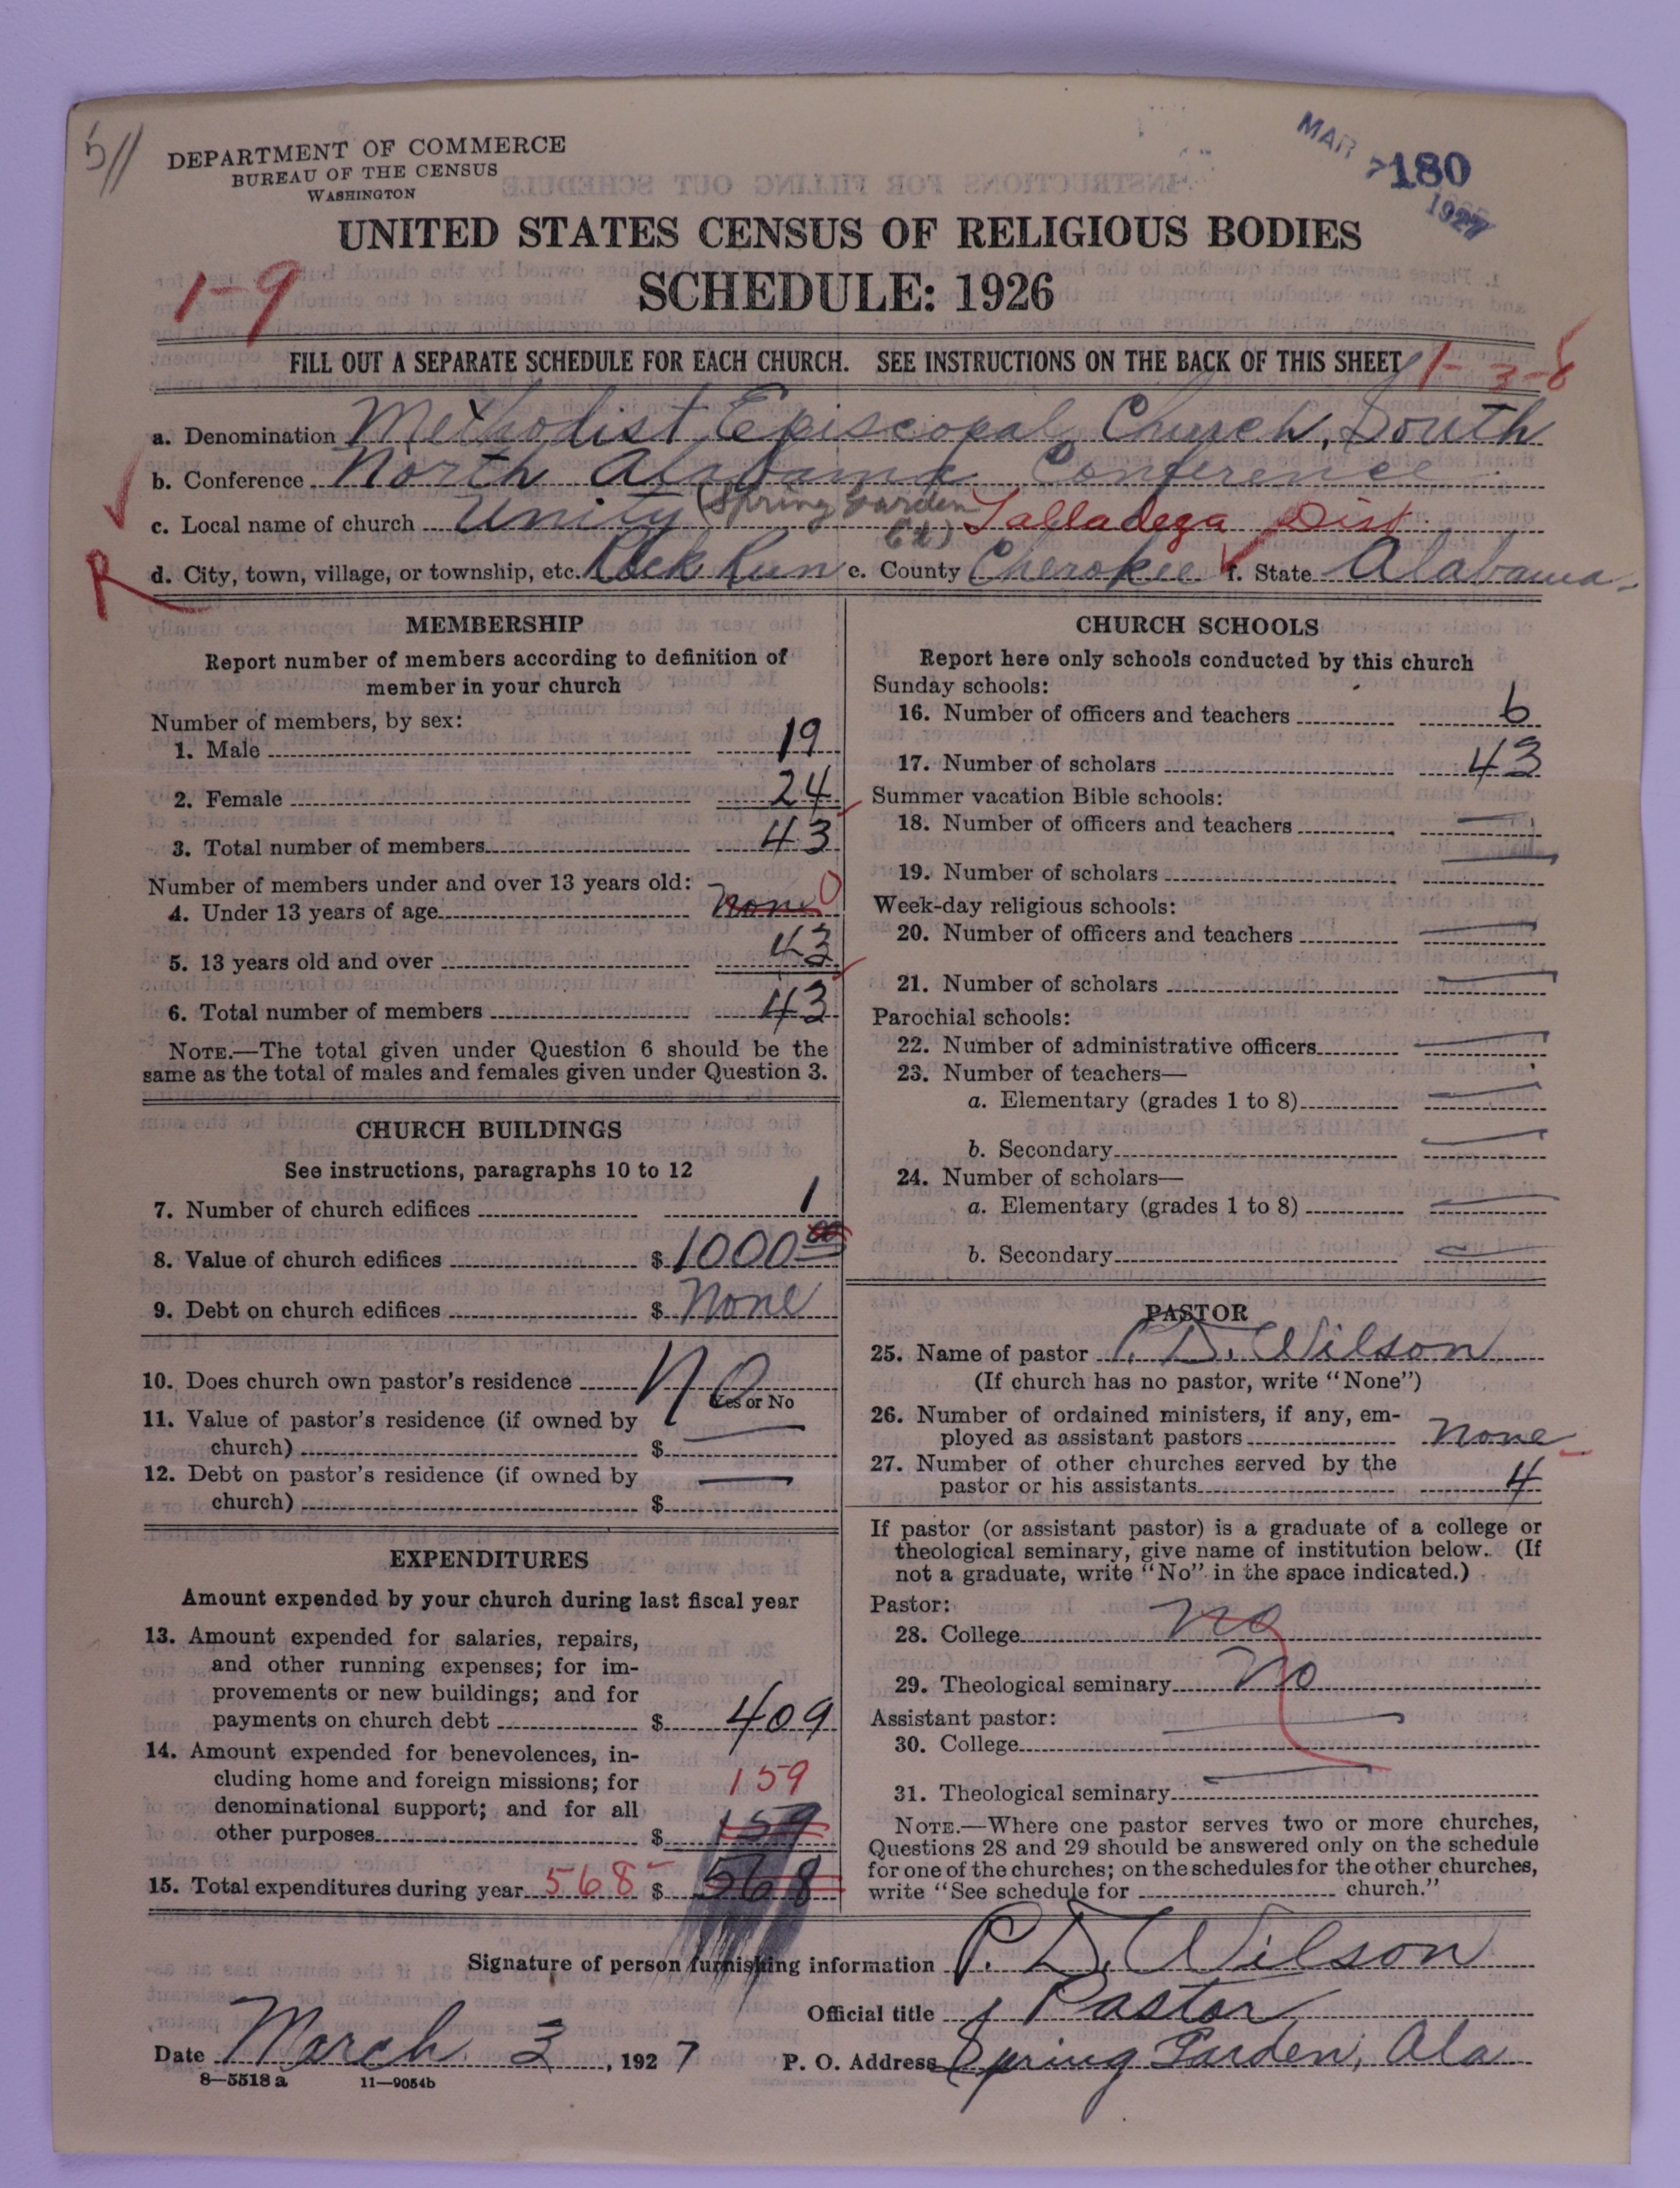 511
DEPARTMENT OF COMMERCE
BUREAU OF THE CENSUS
WASHINGTON
MAR
180
1927
UNITED STATES CENSUS OF RELIGIOUS BODIES
SCHEDULE: 1926
1-9
FILL OUT A SEPARATE SCHEDULE FOR EACH CHURCH. SEE INSTRUCTIONS ON THE BACK OF THIS SHEET
1-3-8
a. Denomination Methodist Episcopal Church, South
b. Conference North Alabama Conference
c. Local name of church Unity (Spring Garden Ct) Talladega Dist
R
d. City, town, village, or township, etc. Rock Run e. County Cherokee f. State Alabama
MEMBERSHIP
Report number of members according to definition of
member in your church
Number of members, by sex:
1. Male 19
2. Female 24
3. Total number of members 43
Number of members under and over 13 years old:
4. Under 13 years of age None 0
5. 13 years old and over 43
6. Total number of members 43
NOTE.—The total given under Question 6 should be the
same as the total of males and females given under Question 3.
CHURCH BUILDINGS
See instructions, paragraphs 10 to 12
7. Number of church edifices 1
8. Value of church edifices $ 1000 00
9. Debt on church edifices $ None
10. Does church own pastor's residence No
Yes or No
11. Value of pastor's residence (if owned by
church) $ —
12. Debt on pastor's residence (if owned by
church) $ —
EXPENDITURES
Amount expended by your church during last fiscal year
13. Amount expended for salaries, repairs,
and other running expenses; for im-
provements or new buildings; and for
payments on church debt $ 409
14. Amount expended for benevolences, in-
cluding home and foreign missions; for 159
denominational support; and for all
other purposes $ 159
15. Total expenditures during year 568 $ 568
CHURCH SCHOOLS
Report here only schools conducted by this church
Sunday schools:
16. Number of officers and teachers 6
17. Number of scholars 43
Summer vacation Bible schools:
18. Number of officers and teachers —
19. Number of scholars —
Week-day religious schools:
20. Number of officers and teachers —
21. Number of scholars —
Parochial schools:
22. Number of administrative officers —
23. Number of teachers—
a. Elementary (grades 1 to 8) —
b. Secondary —
24. Number of scholars—
a. Elementary (grades 1 to 8) —
b. Secondary —
PASTOR
25. Name of pastor P. D. Wilson
(If church has no pastor, write "None")
26. Number of ordained ministers, if any, em-
ployed as assistant pastors None
27. Number of other churches served by the
pastor or his assistants 4
If pastor (or assistant pastor) is a graduate of a college or
theological seminary, give name of institution below. (If
not a graduate, write "No" in the space indicated.)
Pastor:
28. College No
29. Theological seminary No
Assistant pastor:
30. College —
31. Theological seminary —
NOTE.—Where one pastor serves two or more churches,
Questions 28 and 29 should be answered only on the schedule
for one of the churches; on the schedules for the other churches,
write "See schedule for church."
Signature of person furnishing information P. D. Wilson
Official title Pastor
Date March 3, 1927 P. O. Address Spring Garden, Ala
8—5518 a 11—9054b